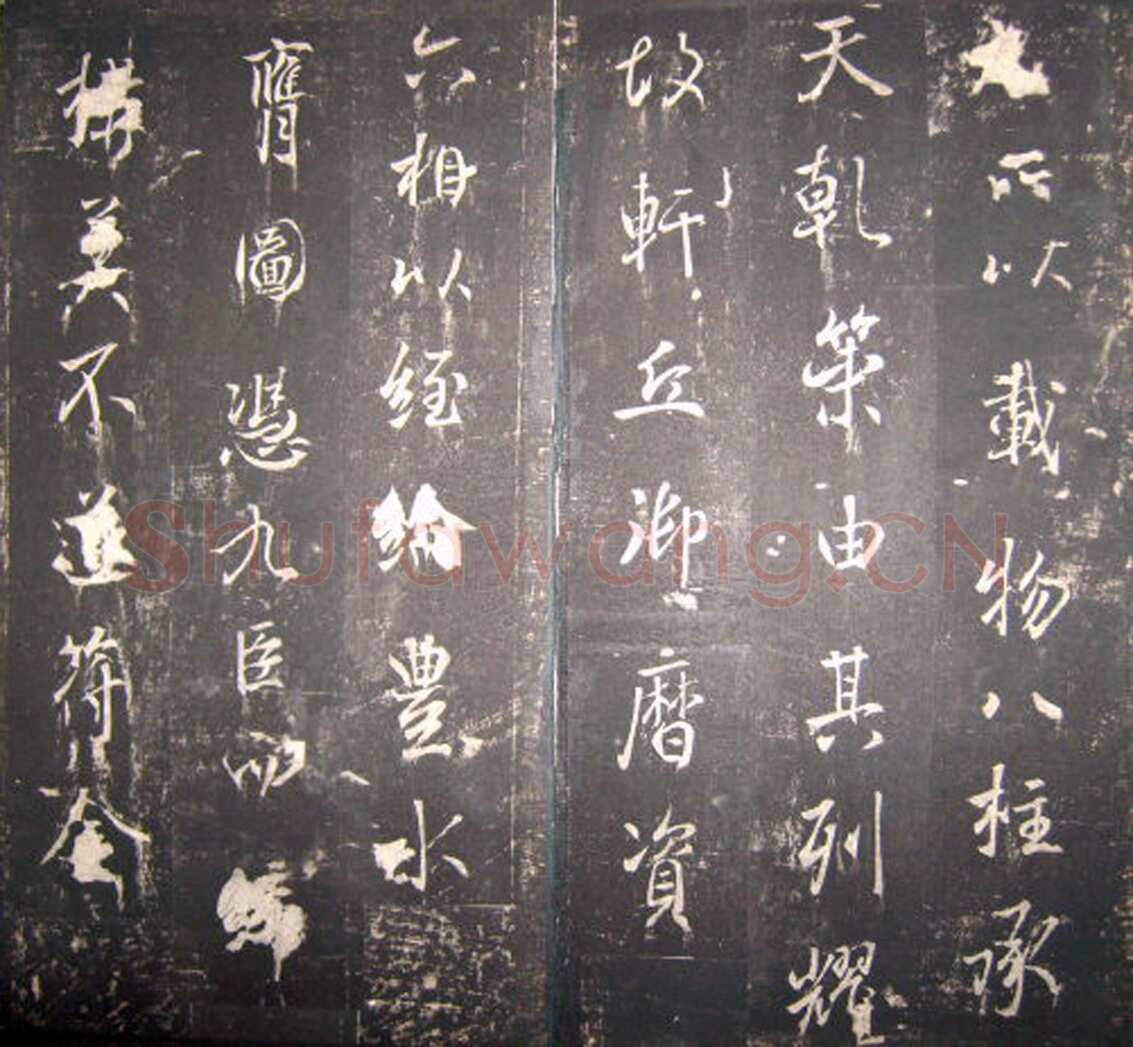 所以載物八柱承
天乾策由其列耀
故軒丘御曆資
六相以經綸豊水
膺圖憑九臣而
構莫不道符金
Shufawang.CN